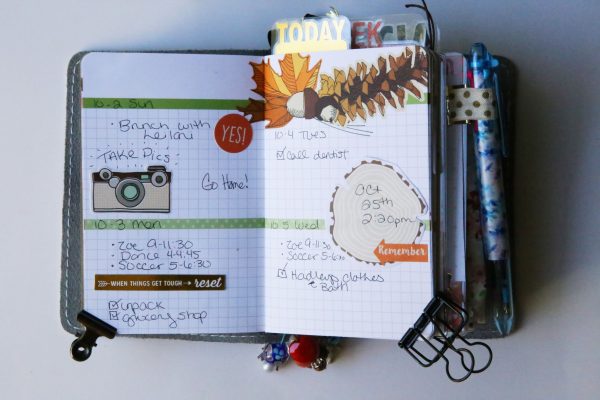 TODAY
EK
10-2 Sun
• Brunch with
Leilani
YES!
TAKE Pics
Go Home!
10-3 mon
• Zoe 9-11:30
• Dance 4-4:45
• Soccer 5-6:30
WHEN THINGS GET TOUGH reset
unpack
grocery shop
10-4 Tues
Call dentist
Oct
25th
2:20pm
Remember
10 5 Wed
• Zoe 9-11:30
• Soccer 5-6:30
Hadleys clothes
Bath